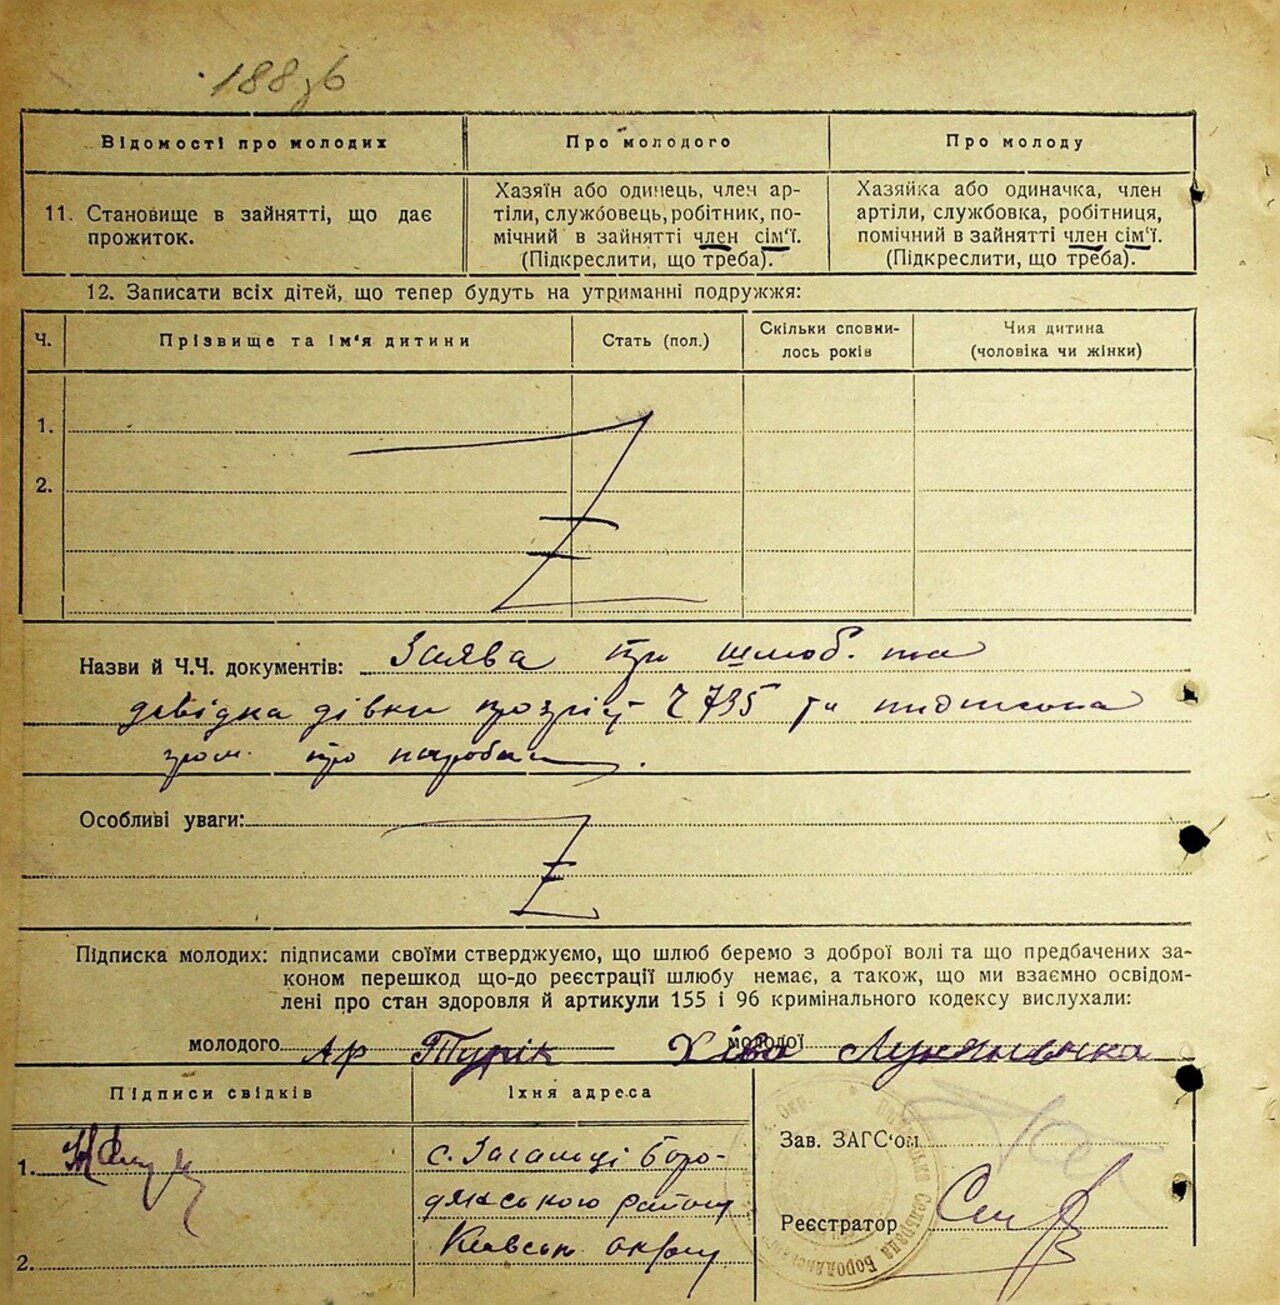 188 зв
Відомості про молодих
Про молодого
Про молоду
11. Становище в зайнятті, що дає
прожиток.
Хазяїн або одинець, член ар-
тіли, службовець, робітник, по-
мічний в зайнятті член сім'ї.
(Підкреслити, що треба).
Хазяйка або одиначка, член
артіли, службовка, робітниця,
помічний в зайнятті член сім'ї.
(Підкреслити, що треба).
12. Записати всіх дітей, що тепер будуть на утриманні подружжя:
Ч.
Прізвище та ім'я дитини
Стать (пол.)
Скільки сповни-
лось років
Чия дитина
(чоловіка чи жінки)
1.
2.
Назви й Ч.Ч. документів: Заява про шлюб. та
довідка дівки про зріст Ч 735 та підписка
гром. про
Особливі уваги:
Підписка молодих: підписами своїми стверджуємо, що шлюб беремо з доброї волі та що предбачених за-
коном перешкод що-до реєстрації шлюбу немає, а також, що ми взаємно освідом-
лені про стан здоровля й артикули 155 і 96 кримінального кодексу вислухали:
молодого Ар Турік молодої Хівба Лукяненчка
Підписи свідків
Їхня адреса
1.
с. Загальці Боро-
дянського району
Київськ округу
2.
Зав. ЗАГС'ом
Реєстратор